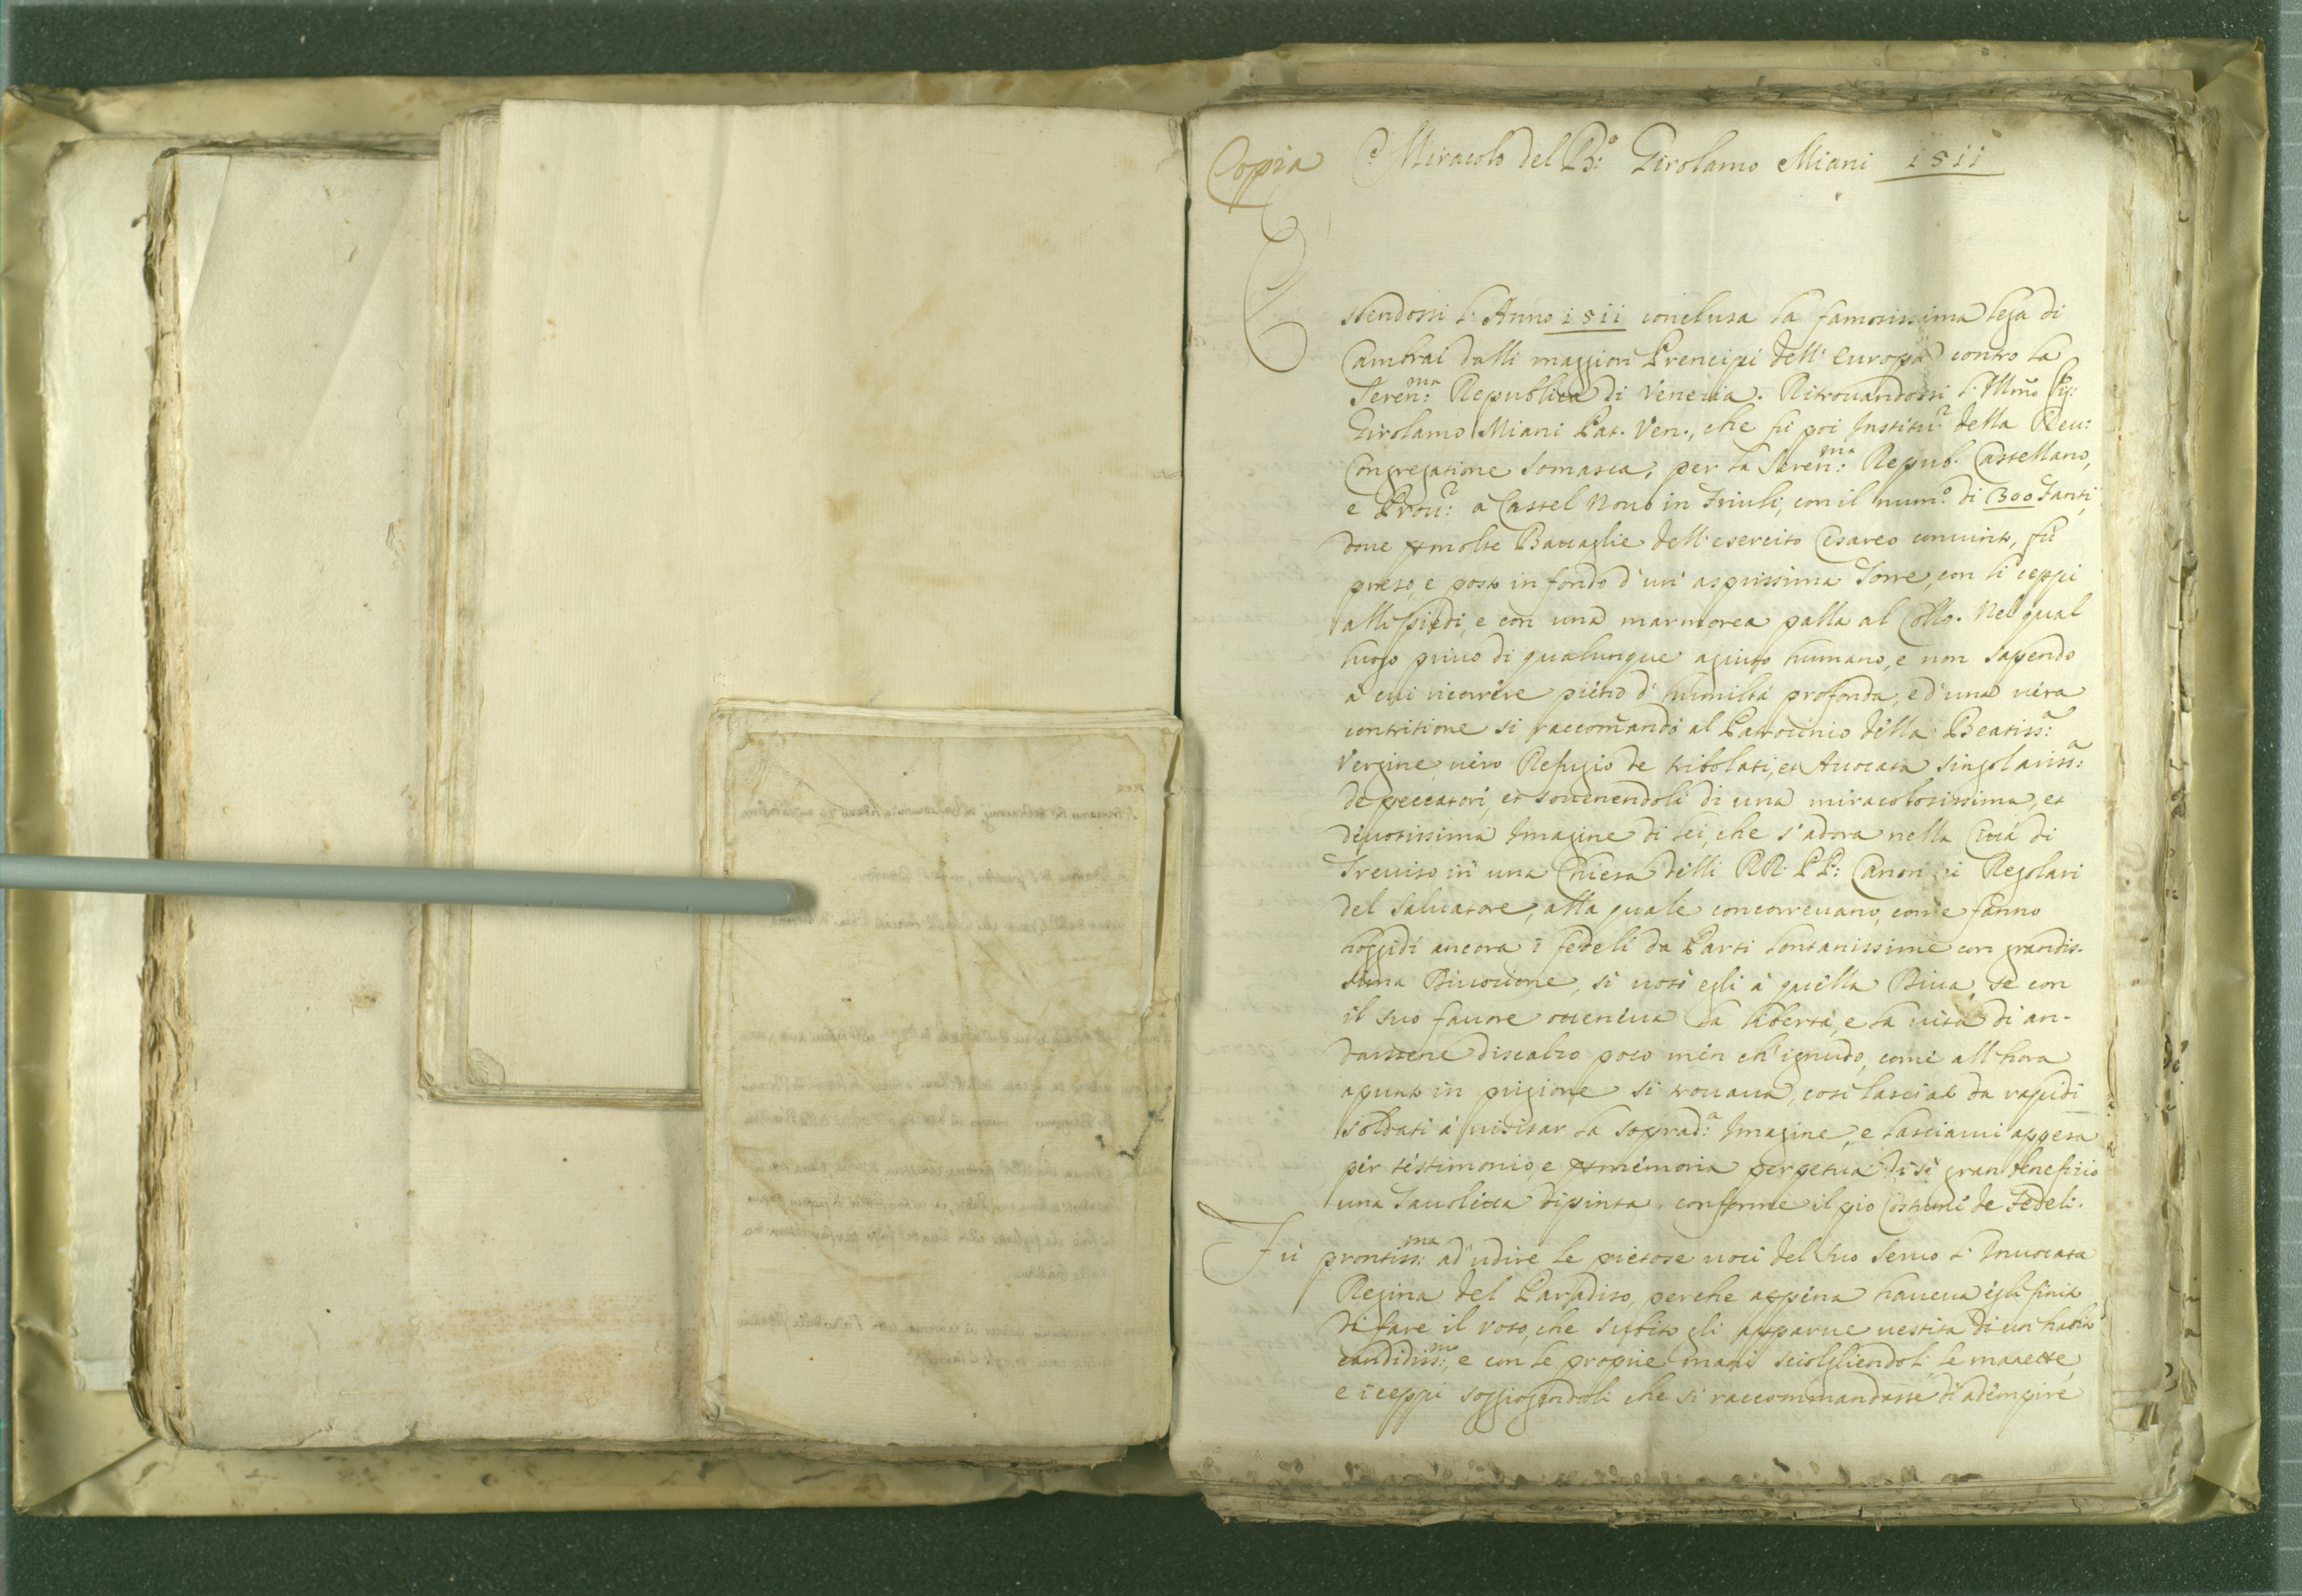 Copia Miracolo del B.º Girolamo Miani 1511
Essendossi l'Anno 1511 conclusa la famosissima lega di
Cambrai dalli maggiori Prencipi dell'Europa contro la
Seren:ma Republica di Venetia. Ritrouandossi l'Illmo Sig:
Girolamo Miani Pat. Ven., che fù poi Institu.r della Reu:
Congregatione Somasca, per la Seren:ma Repub. Castellano,
e Prou:r a Castel Nouo in Friuli, con il num.º di 300 Fanti,
doue molte Battaglie dell'esercito Cesareo conuinto, fù
preso, e posto in fondo d'un' asprissima Torre, con li ceppi
alli piedi, e con una marmorea palla al Collo. Nel qual
luogo priuo di qualunque agiuto humano, e non sapendo
à cui ricorrere pieno d'humiltà profonda, e d'una uera
contritione si raccomandò al Patrocinio della Beatiss:a
Vergine uero Refugio de tribolati, et Auocata singolariss:a
de peccatori, et souenendoli di una miracolosissima, et
diuotissima Imagine di lei, che s'adora nella Città di
Treuiso in una Chiesa delli RR. PP: Canonici Regolari
del Saluatore, alla quale concorreuano, come fanno
hoggidì ancora i fedeli da Parti lontanissime con grandis-
sima Diuotione, si uotò egli à quella Diua, se con
il suo fauore otteneua la libertà, e la uita di an-
darsene discalzo poco men ch'ignudo, come all'hora
apunto in prigione si trouaua, così lasciato da rapidi
soldati à uisitar la soprad:a Imagine, e lasciarui appesa
per testimonio, e memoria perpetua di sì gran beneficio
una Tauoletta dipinta, conforme il pio Costume de Fedeli.
Fù prontiss:ma ad udire le pietose uoci del suo Seruo l'Inuocata
Regina del Paradiso, perche appena haueua egli finito
di fare il voto, che subito gli apparue uestita di un habito
candidiss:mo, e con le proprie mani sciogliendoli le manette,
e i ceppi soggiogendoli che si raccommandasse di adempire